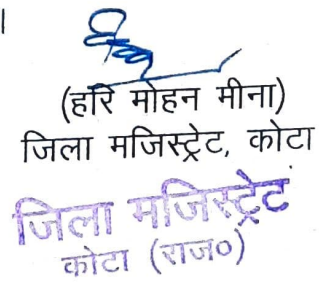 (हरि मोहन मीना)
जिला मजिस्ट्रेट, कोटा
जिला मजिस्ट्रेट
कोटा (राज०)